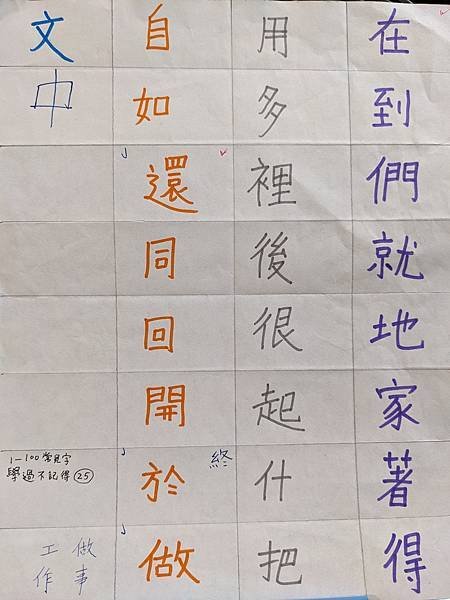 在到們就地家著得
用多裡後很起什把
自如還同回開於做
終
文中
1-100常見字
學過不記得 25
做事
工作